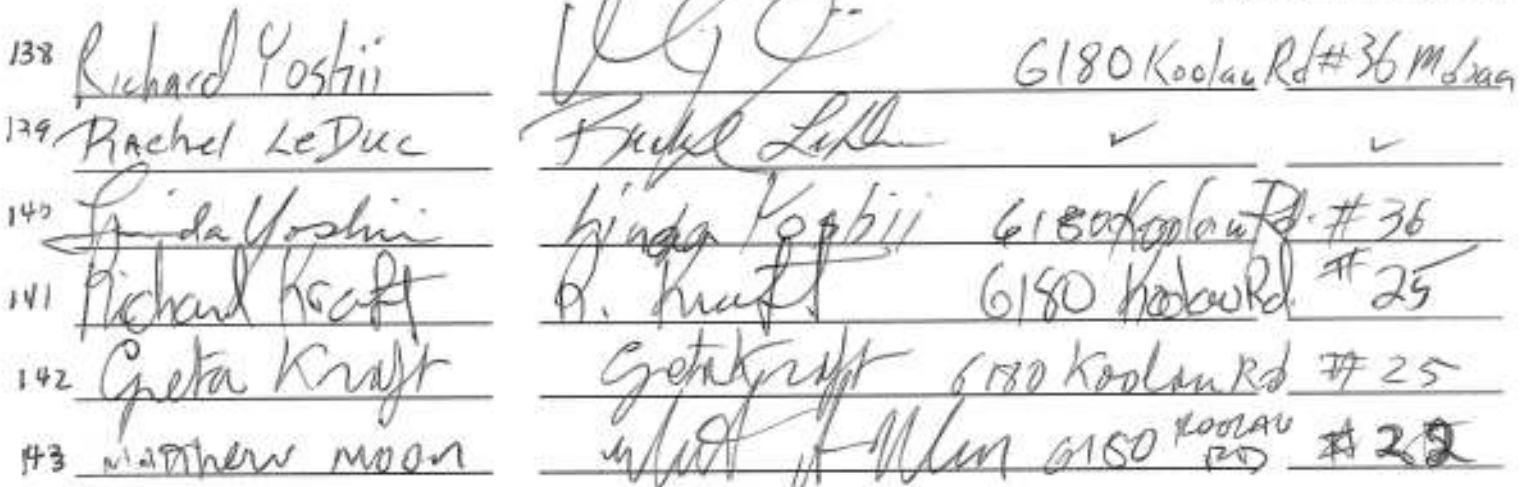 138 Richard Yoshii 6180 Koolau Rd #36 Moloaa
139 Rachel LeDuc Rachel LeDuc ✓ ✓
140 Linda Yoshii Linda Yoshii 6180 Koolau Rd. #36
141 Richard Kraft R. Kraft 6180 Koolau Rd. #25
142 Greta Kraft Greta Kraft 6180 Koolau Rd #25
143 Matthew Moon 6180 KOOLAU RD #22